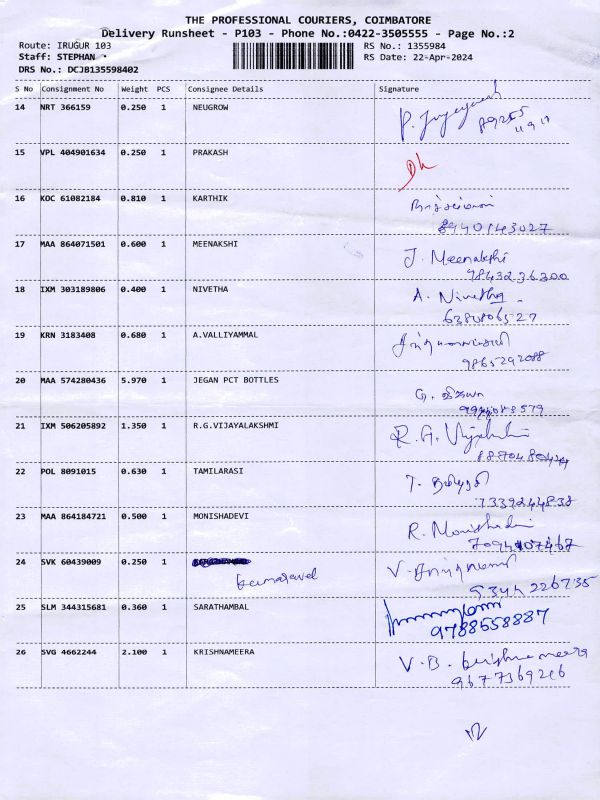 THE PROFESSIONAL COURIERS, COIMBATORE
Delivery Runsheet - P103 - Phone No.:0422-3505555 - Page No.:2
Route: IRUGUR 103 RS No.: 1355984
Staff: STEPHAN RS Date: 22-Apr-2024
DRS No.: DCJB135598402
S No Consignment No Weight PCS Consignee Details Signature
14 NRT 366159 0.250 1 NEUGROW
15 VPL 404901634 0.250 1 PRAKASH
16 KOC 61082184 0.810 1 KARTHIK
8940143027
17 MAA 864071501 0.600 1 MEENAKSHI J. Meenakshi
9843236300
18 IXM 303189806 0.400 1 NIVETHA A. Nivetha
6380806527
19 KRN 3183408 0.680 1 A.VALLIYAMMAL
9865292088
20 MAA 574280436 5.970 1 JEGAN PCT BOTTLES
21 IXM 506205892 1.350 1 R.G.VIJAYALAKSHMI R. G. Vijayalakshmi
22 POL 8091015 0.630 1 TAMILARASI
7339244838
23 MAA 864184721 0.500 1 MONISHADEVI R. Monishadevi
7094407467
24 SVK 60439009 0.250 1
9344226735
25 SLM 344315681 0.360 1 SARATHAMBAL
9788558887
26 SVG 4662244 2.100 1 KRISHNAMEERA V. B. Krishnameera
9677369266
12